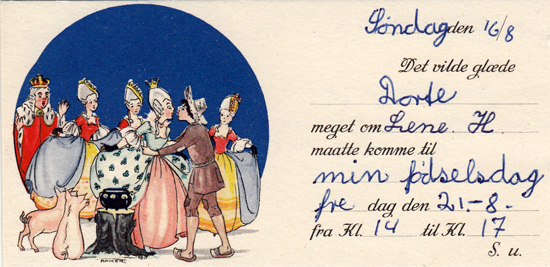 Søndag den 16/8
Det vilde glæde
Dorte
meget om Lene H.
maatte komme til
min födselsdag
fre dag den 21.-8.
fra Kl. 14 til Kl. 17
S. u.